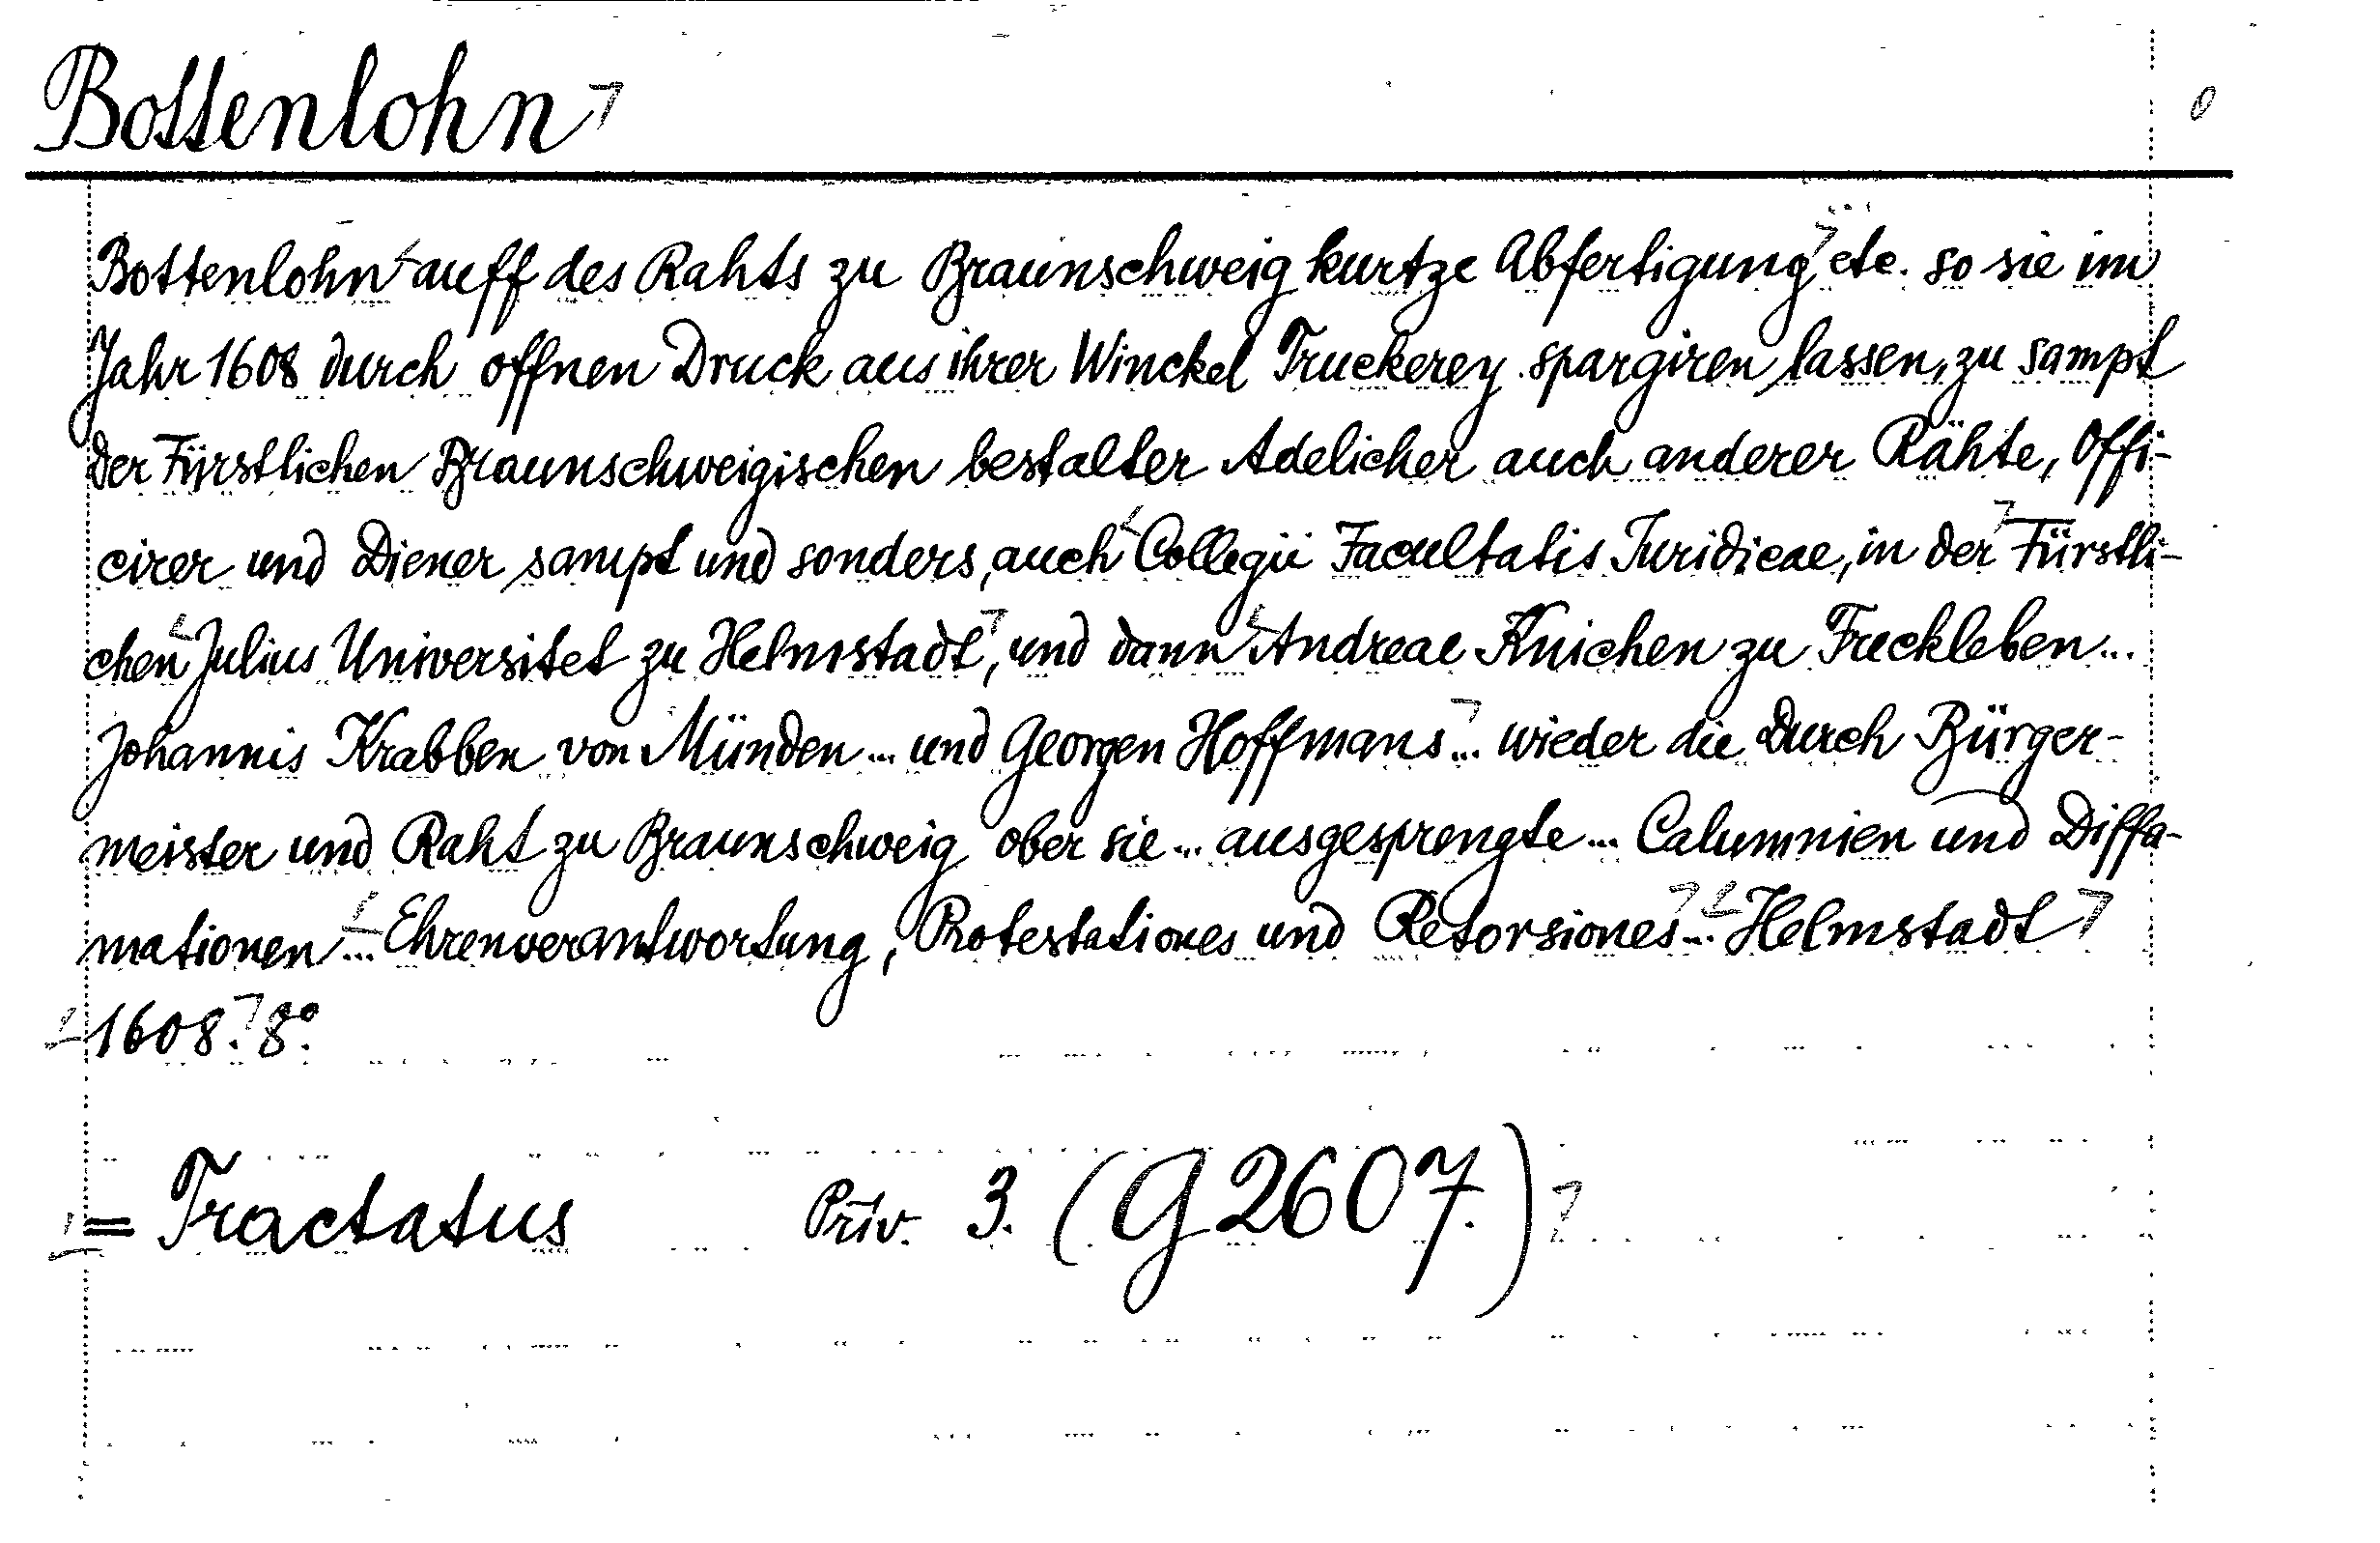 Bottenlohn
Bottenlohn auff des Rahts zu Braunschweig kurtze Abfertigung etc. so sie im
Jahr 1608 durch offnen Druck aus ihrer Winckel Truckerey spargiren lassen, zu sampt
der Fürstlichen Braunschweigischen bestalter Adelicher auch anderer Rähte, Offi-
cirer und Diener sampt und sonders, auch Collegii Facultatis Juridicae, in der Fürstli-
chen Julius Universitet zu Helmstadt, und dann Andreae Knichen zu Freckleben...
Johannis Krabben von Münden... und Georgen Hoffmans... wieder die durch Bürger-
meister und Raht zu Braunschweig ober sie... ausgesprengte... Calumnien und Diffa-
mationen... Ehrenverantwortung, Protestationes und Retorsiones... Helmstadt
1608. 8°.
= Tractatus Priv. 3. (G 2607.)